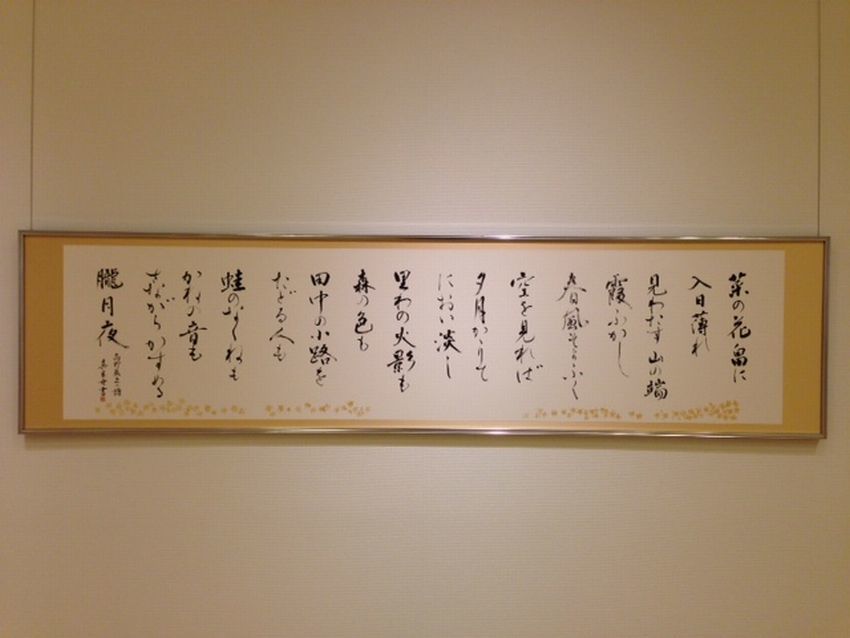 菜の花畠に
入日薄れ
見わたす山の端
霞ふかし
春風そよふく
空を見れば
夕月かゝりて
におい淡し
里わの火影も
森の色も
田中の小路を
たどる人も
蛙のなくねも
かねの音も
さながらかすめる
朧月夜
高野辰之 詩